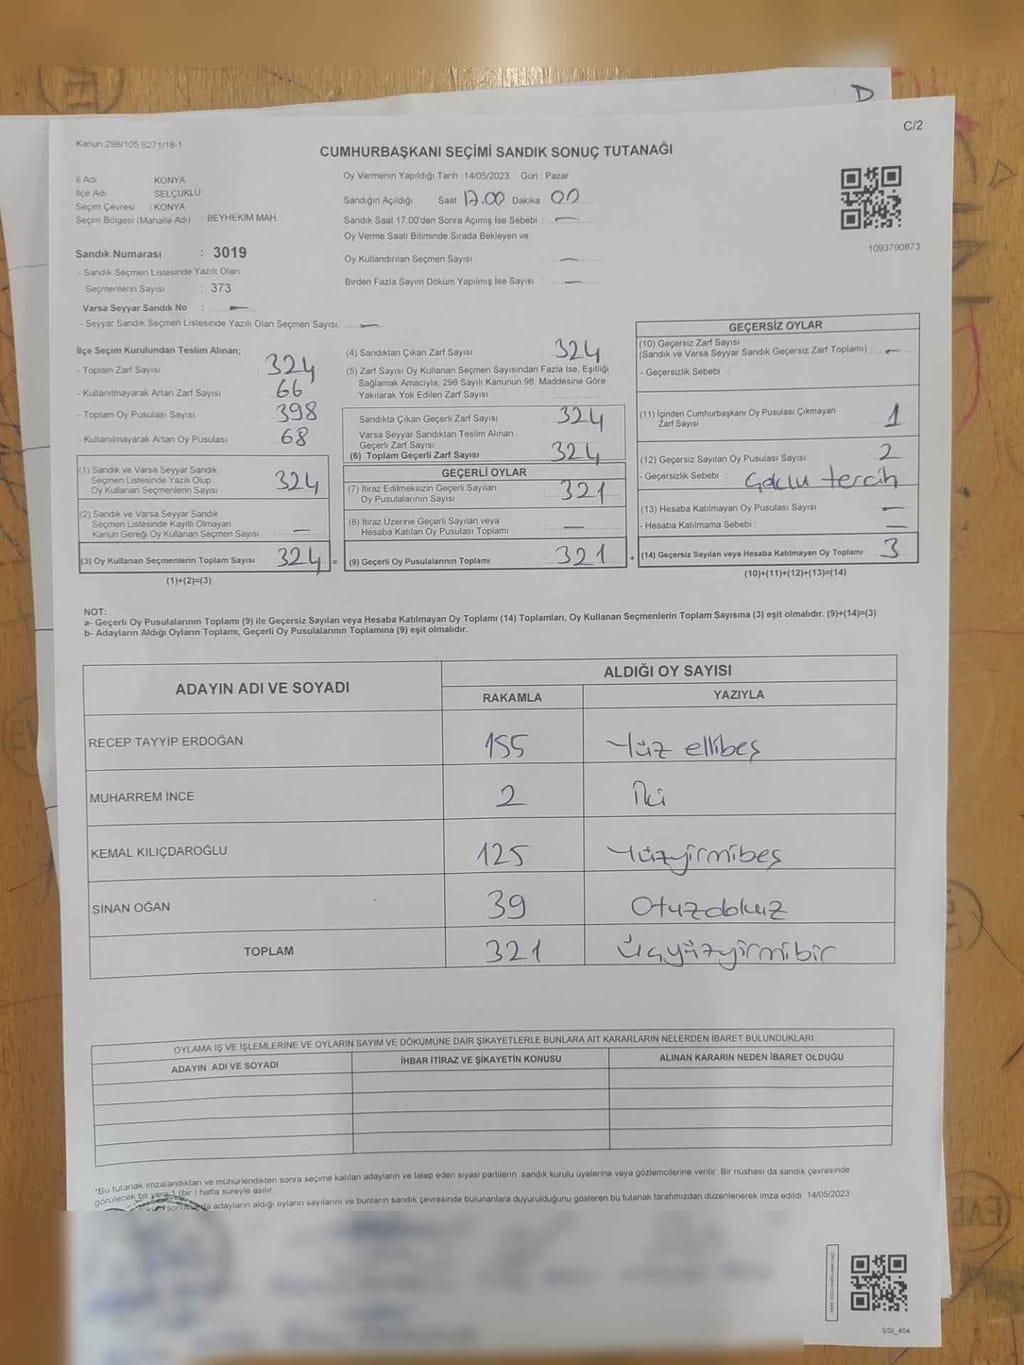 D
C/2
Kanun:298/105,6271/18-1
CUMHURBAŞKANI SEÇİMİ SANDIK SONUÇ TUTANAĞI
İl Adı : KONYA
İlçe Adı : SELÇUKLU
Seçim Çevresi : KONYA
Seçim Bölgesi (Mahalle Adı) : BEYHEKİM MAH.
Sandık Numarası : 3019
- Sandık Seçmen Listesinde Yazılı Olan
Seçmenlerin Sayısı : 373
Varsa Seyyar Sandık No : —
- Seyyar Sandık Seçmen Listesinde Yazılı Olan Seçmen Sayısı: —
Oy Vermenin Yapıldığı Tarih :14/05/2023 Gün : Pazar
Sandığın Açıldığı Saat 17.00 Dakika 00
Sandık Saat 17.00'den Sonra Açımış İse Sebebi : —
Oy Verme Saati Bitiminde Sırada Bekleyen ve
Oy Kullandırılan Seçmen Sayısı : —
Birden Fazla Sayım Döküm Yapılmış İse Sayısı : —
1093790873
İlçe Seçim Kurulundan Teslim Alınan;
- Toplam Zarf Sayısı : 324
- Kullanılmayarak Artan Zarf Sayısı : 66
- Toplam Oy Pusulası Sayısı : 398
- Kullanılmayarak Artan Oy Pusulası : 68
(1) Sandık ve Varsa Seyyar Sandık
Seçmen Listesinde Yazılı Olup
Oy Kullanan Seçmenlerin Sayısı : 324
(2) Sandık ve Varsa Seyyar Sandık
Seçmen Listesinde Kayıtlı Olmayan
Kanun Gereği Oy Kullanan Seçmen Sayısı : —
(3) Oy Kullanan Seçmenlerin Toplam Sayısı : 324 =
(1)+(2)=(3)
(4) Sandıktan Çıkan Zarf Sayısı : 324
(5) Zarf Sayısı Oy Kullanan Seçmen Sayısından Fazla İse, Eşitliği
Sağlamak Amacıyla, 298 Sayılı Kanunun 98. Maddesine Göre
Yakılarak Yok Edilen Zarf Sayısı :
Sandıkta Çıkan Geçerli Zarf Sayısı : 324
Varsa Seyyar Sandıktan Teslim Alınan
Geçerli Zarf Sayısı :
(6) Toplam Geçerli Zarf Sayısı : 324
GEÇERLİ OYLAR
(7) İtiraz Edilmeksizin Geçerli Sayılan
Oy Pusulalarının Sayısı : 321
(8) İtiraz Üzerine Geçerli Sayılan veya
Hesaba Katılan Oy Pusulası Toplamı : —
(9) Geçerli Oy Pusulalarının Toplamı : 321 +
GEÇERSİZ OYLAR
(10) Geçersiz Zarf Sayısı
(Sandık ve Varsa Seyyar Sandık Geçersiz Zarf Toplamı) : —
- Geçersizlik Sebebi :
(11) İçinden Cumhurbaşkanı Oy Pusulası Çıkmayan
Zarf Sayısı : 1
(12) Geçersiz Sayılan Oy Pusulası Sayısı : 2
- Geçersizlik Sebebi : Çoklu tercih
(13) Hesaba Katılmayan Oy Pusulası Sayısı : —
- Hesaba Katılmama Sebebi : —
(14) Geçersiz Sayılan veya Hesaba Katılmayan Oy Toplamı : 3
(10)+(11)+(12)+(13)=(14)
NOT:
a- Geçerli Oy Pusulalarının Toplamı (9) ile Geçersiz Sayılan veya Hesaba Katılmayan Oy Toplamı (14) Toplamları, Oy Kullanan Seçmenlerin Toplam Sayısına (3) eşit olmalıdır. (9)+(14)=(3)
b- Adayların Aldığı Oyların Toplamı, Geçerli Oy Pusulalarının Toplamına (9) eşit olmalıdır.
ADAYIN ADI VE SOYADI ALDIĞI OY SAYISI
RAKAMLA YAZIYLA
RECEP TAYYİP ERDOĞAN 155 Yüz ellibeş
MUHARREM İNCE 2 İki
KEMAL KILIÇDAROĞLU 125 Yüzyirmibeş
SİNAN OĞAN 39 Otuzdokuz
TOPLAM 321 Üçyüzyirmibir
OYLAMA İŞ VE İŞLEMLERİNE VE OYLARIN SAYIM VE DÖKÜMÜNE DAİR ŞİKAYETLERLE BUNLARA AİT KARARLARIN NELERDEN İBARET BULUNDUKLARI
ADAYIN ADI VE SOYADI İHBAR İTİRAZ VE ŞİKAYETİN KONUSU ALINAN KARARIN NEDEN İBARET OLDUĞU
*Bu tutanak imzalandıktan ve mühürlendikten sonra seçime katılan adayların ve talep eden siyasi partilerin sandık kurulu üyelerine veya gözlemcilerine verilir. Bir nüshası da sandık çevresinde
görülecek bir yere 1 (bir) hafta süreyle asılır.
adayların aldığı oyların sayılarını ve bunların sandık çevresinde bulunanlara duyurulduğunu gösteren bu tutanak tarafımızdan düzenlenerek imza edildi. 14/05/2023
SSI_404